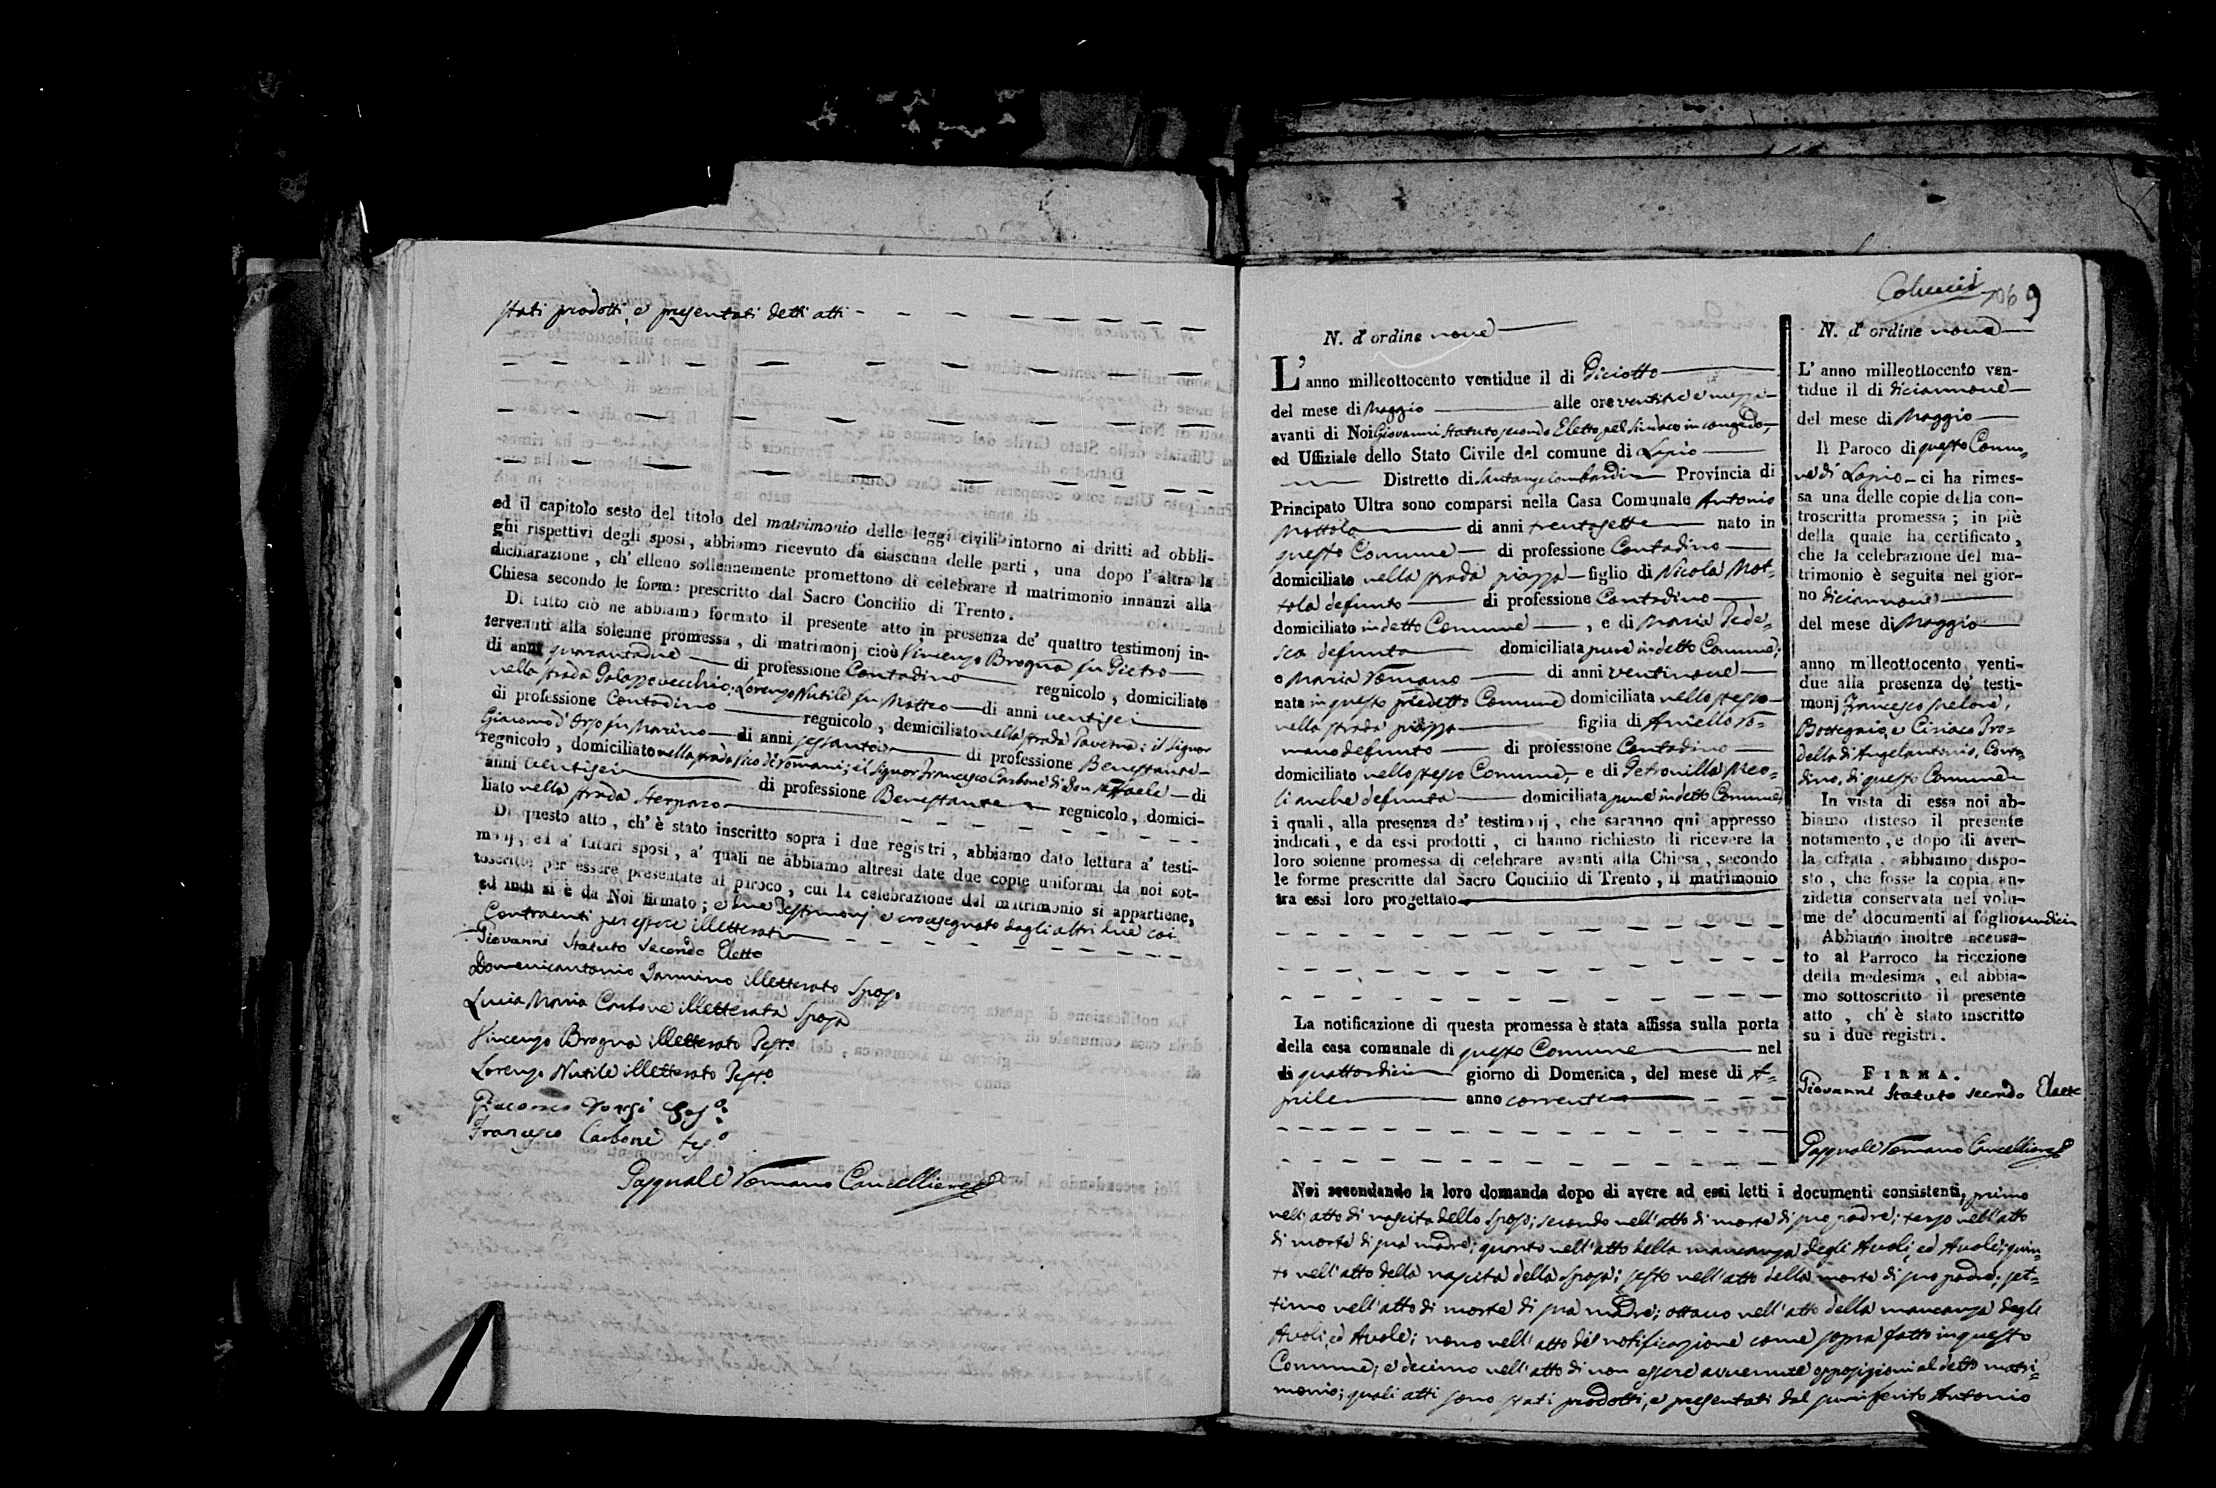 stati prodotti, e presentati detti atti
ed il capitolo sesto del titolo del matrimonio delle leggi civili intorno ai dritti ad obbli-
ghi rispettivi degli sposi, abbiamo ricevuto da ciascuna delle parti, una dopo l'altra la
dichiarazione, ch' elleno sollennemente promettono di celebrare il matrimonio innanzi alla
Chiesa secondo le forme prescritto dal Sacro Concilio di Trento.
Di tutto ciò ne abbiamo formato il presente atto in presenza de' quattro testimonj in-
tervenuti alla solenne promessa, di matrimonj cioè Vincenzo Brogna fu Pietro
di anni quarantadue di professione Contadino regnicolo, domiciliato
nella strada Palazzovecchio; Lorenzo Nutile fu Matteo di anni ventisei
di professione Contadino regnicolo, domiciliato nella strada Taverna; il Signor
Giacomo d'Orso fu Marino di anni sessanta di professione Benestante
regnicolo, domiciliato nella strada vico di Romani; e il Signor Francesco Carbone di Don Raffaele di
anni ventisei di professione Benestante regnicolo, domici-
liato nella strada Sterparo
Di questo atto, ch' è stato inscritto sopra i due registri, abbiamo dato lettura a' testi-
monj, ed a' futuri sposi, a' quali ne abbiamo altresi date due copie uniformi da noi sot-
toscritte per essere presentate al paroco, cui la celebrazione del matrimonio si appartiene,
ed indi si è da Noi firmato; e due Testimonj e crocesegnato dagli altri due coi
Contraenti per essere illetterati
Giovanni Statuto Secondo Eletto
Domenicantonio Iannino illetterato Sposo
Lucia Maria Carbone illetterata Sposa
Vincenzo Brogna illetterato Testo
Lorenzo Nutile illetterato Testo
Giacomo Dorsi Tesº
Francesco Carbone tesº
Pasquale Romano Cancelliere
Colucci
106 9
N. d' ordine nove
L' anno milleottocento ventidue il di Diciotto
del mese di Maggio alle ore ventitre e mezza
avanti di Noi Giovanni Statuto secondo Eletto pel Sindaco in congedo,
ed Uffiziale dello Stato Civile del comune di Lapio
Distretto di Santangelo Lombardi Provincia di
Principato Ultra sono comparsi nella Casa Comunale Antonio
Mottola di anni trentasette nato in
questo Comune di professione Contadino
domiciliato nella strada piazza figlio di Nicola Mot-
tola defunto di professione Contadino
domiciliato in detto Comune, e di Maria Tede-
sca defunta domiciliata pure in detto Comune;
e Maria Romano di anni ventinove
nata in questo predetto Comune domiciliata nello stesso
nella strada piazza figlia di Aniello Ro-
mano defunto di professione Contadino
domiciliato nello stesso Comune, e di Petronilla Meo-
li anche defunta domiciliata pure in detto Comune
i quali, alla presenza de' testimonj, che saranno qui appresso
indicati, e da essi prodotti, ci hanno richiesto di ricevere la
loro solenne promessa di celebrare avanti alla Chiesa, secondo
le forme prescritte dal Sacro Concilio di Trento, il matrimonio
tra essi loro progettato
La notificazione di questa promessa è stata affissa sulla porta
della casa comunale di questo Comune nel
di quattordici giorno di Domenica, del mese di A-
prile anno corrente
N. d' ordine nove
L' anno milleottocento ven-
tidue il di diciannove
del mese di Maggio
Il Paroco di questo Comu-
ne di Lapio ci ha rimes-
sa una delle copie della con-
troscritta promessa; in piè
della quale ha certificato,
che la celebrazione del ma-
trimonio è seguita nel gior-
no diciannove
del mese di Maggio
anno milleottocento venti-
due alla presenza de' testi-
monj Francesco
Bottegaio, e Ciriaco Pro-
della di Angelantonio, Conta-
dino, di questo Comune
In vista di essa noi ab-
biamo disteso il presente
notamento, e dopo di aver-
la cifrata, abbiamo dispo-
sto, che fosse la copia an-
zidetta conservata nel volu-
me de' documenti al foglio undici
Abbiamo inoltre accusa-
to al Parroco la ricezione
della medesima, ed abbia-
mo sottoscritto il presente
atto, ch' è stato inscritto
su i due registri.
FIRMA.
Giovanni Statuto secondo Eletto
Pasquale Romano Cancelliere
Noi secondando la loro domanda dopo di avere ad essi letti i documenti consistenti, primo
nell'atto di nascita dello sposo; secondo nell'atto di morte di suo padre; terzo nell'atto
di morte di sua madre; quarto nell'atto della mancanza degli Avoli, ed Avole; quin-
to nell'atto della nascita della sposa; sesto nell'atto della morte di suo padre; set-
timo nell'atto di morte di sua madre; ottavo nell'atto della mancanza degli
Avoli, ed Avole; nono nell'atto di notificazione come sopra fatto in questo
Comune; e decimo nell'atto di non essere avvenute opposizioni al detto matri-
monio; quali atti sono stati prodotti, e presentati dal Antonio